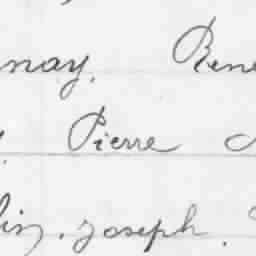 nay. René
Pierre
lin, Joseph.